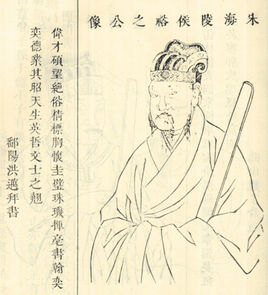 朱海陵侯略之公像
偉才碩望絕俗情標胸懷圭璧珠璣揮毫書翰奕
奕德業其昭天生英哲文士之翹
鄱陽洪邁拜書